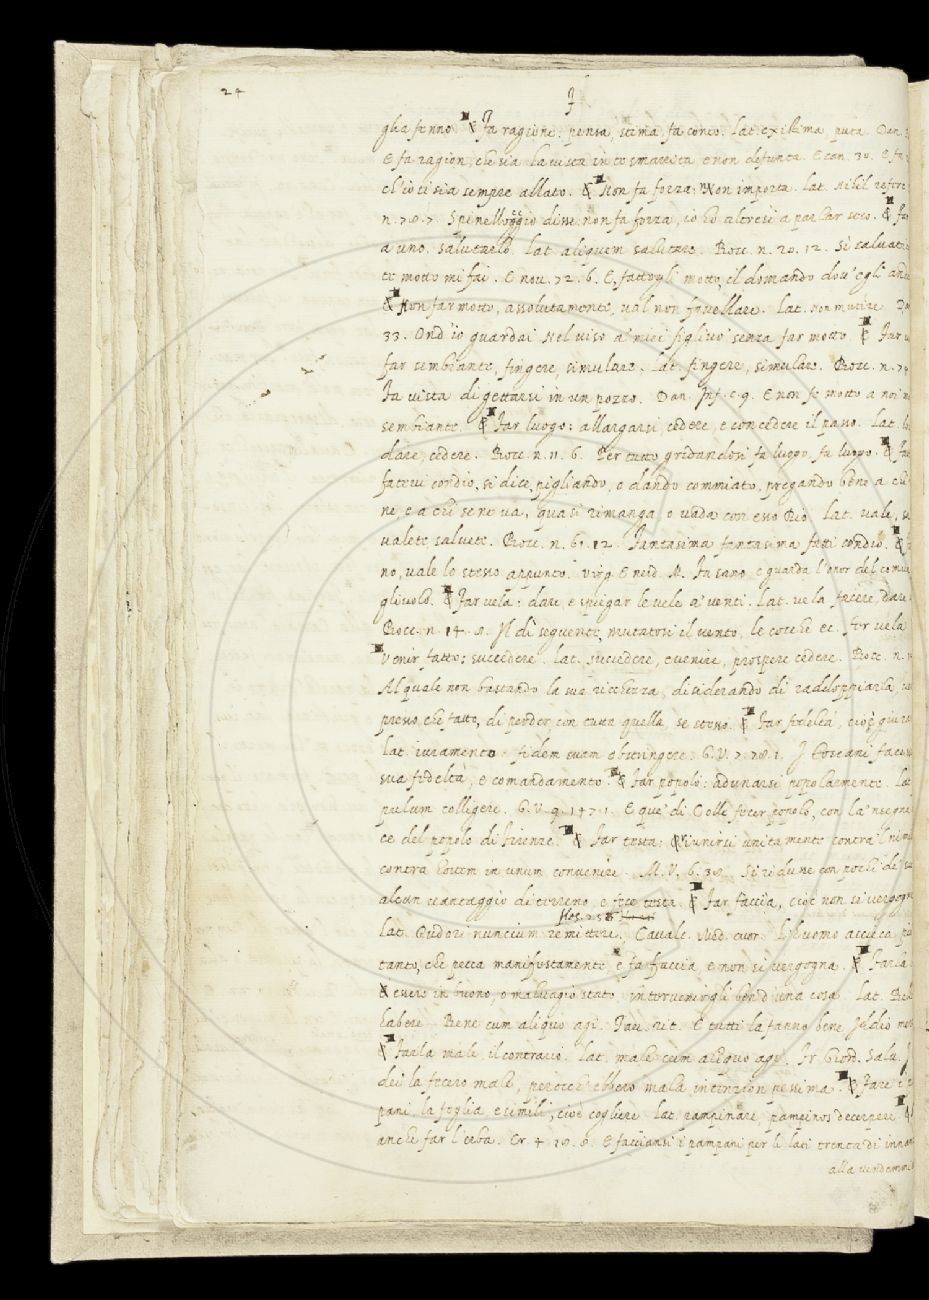 24
F
glia senno. & Fa ragione: pensa, stima, fa conto. Lat. existima, puta. Dan.
E fa ragion, che sia la vista in te smarrita e non defunta. E can. 30. E fa
ch'io ti sia sempre allato. & Non fa forza: Non importa. Lat. Nihil refert
n. 78. 7. Spinelloccio disse: non fa forza, io ho altresì a parlar seco. & Far
a uno. Salutarlo. Lat. aliquem salutare. Bocc. n. 20. 12. Sì salvat
te motto mi fai. E nov. 72. 6. E, fattogli motto, il domandò dov'egli anda
& Non far motto, assolutamente, val non favellare. Lat. non mutire. Dan
33. Ond'io guardai Nel viso a' miei figliuoi senza far motto. & Far
far sembiante, fingere, simulare. Lat. fingere, simulare. Bocc. n.
Fa vista di gettarsi in un pozzo. Dan. Inf. c. 9. E non fe motto a noi
sembiante. & Far luogo: allargarsi, cedere, e concedere il passo. Lat.
dare, cedere. Bocc. n. 11. 6. Per tutto gridandosi fa luogo, fa luogo. & Fa
fatevi condio, si dice, pigliando, o dando commiato, pregando bene a chi
ne, e a chi se ne va, quasi rimanga o vada con esso Dio. Lat. vale,
valete salvete. Bocc. n. 61. 12. Fantasima fantasima fatti condio. &
no, vale lo stesso appunto. Virg. Eneid. M. Fa sano e guarda l'onor del comun
gliuolo. & Far vela: dare, e spiegar le vele a' venti. Lat. vela facere, dare
Bocc. n. 14. 8. Il dì seguente, mutatosi il vento, le cocche ec. fer vela
Venir fatto: succedere. Lat. succedere, evenire, prospere cedere. Bocc. n.
Al quale non bastando la sua ricchezza, disiderando di raddoppiarla,
presso che fatto, di perder con tutta quella se stesso. & Far fedeltà, cioè giu
Lat. iuramento fidem suam obstringere. G. V. 7. 78. 1. I Toscani
sua fedeltà, e comandamento. & Far popolo: adunarsi popolarmente. Lat
pulum colligere. G. V. 9. 147. 1. E que' di Colle fecer popolo, con la 'nsegne
te del popolo di Firenze. & Far testa: Riunirsi unitamente contra 'l nimi
contra hostem in unum convenire. M. V. 6. 38. Si ridusse con pochi de'
alcun vantaggio di terreno, e fece testa. & Far faccia, cioè non si vergogn
Lat. Pudori nuncium remittere. Cavalc. Med. cuor. L'huomo accieca
tanto, che pecca manifestamente, e fa faccia, e non si vergogna. & Farla
& essere in buono, o malvagio stato, intervenirgli ben d'una cosa. Lat. Bene
habere. Bene cum aliquo agi. Tav. rit. E tutti la fanno bene, Iddio
& Farla male, il contrario. Lat. male cum aliquo agi. Fr. Giord. Salv.
dei la fecero male, perocch'ebbero mala intenzion pessima. & Fare i
pani, la foglia e simili, cioè cogliere. Lat. pampinare, pampinos decerpere. &
anche far l'erba. Cr. 4. 18. 8. E facciansi i pampani per li lati trenta dì innan
alla vendemmia